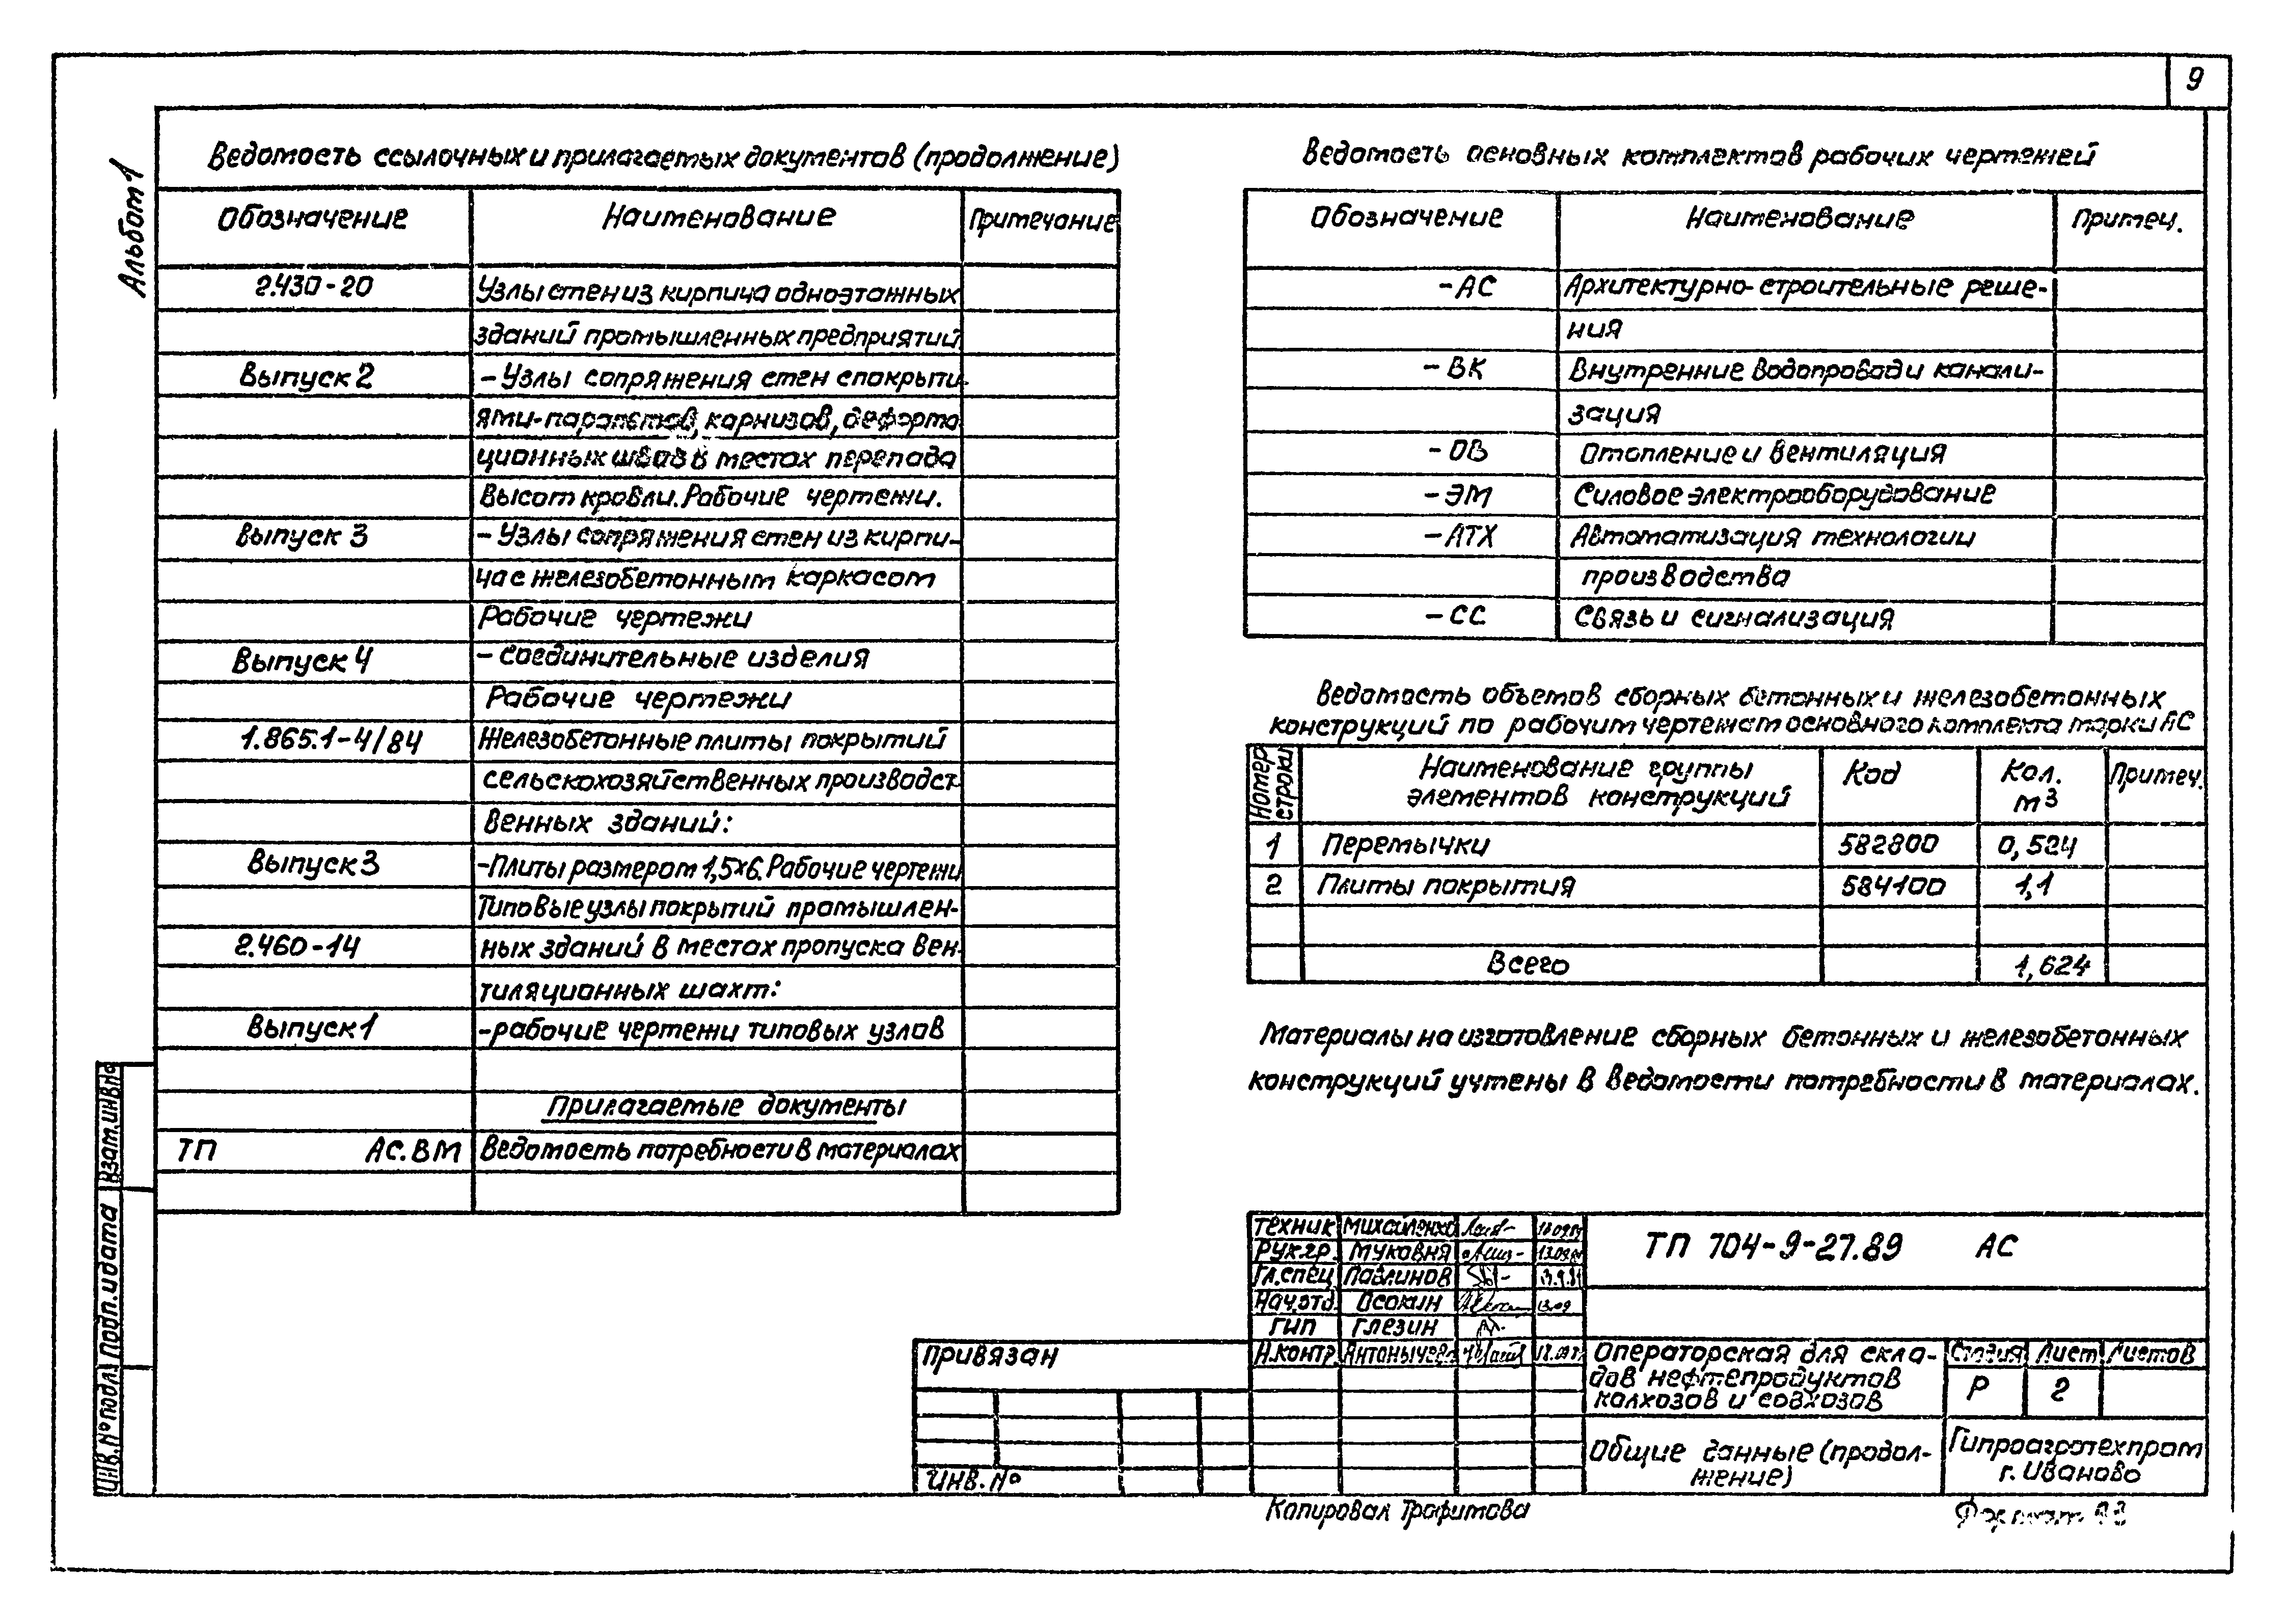 9
Альбом 1
Ведомость ссылочных и прилагаемых документов (продолжение)
Обозначение Наименование Примечание
2.430-20 Узлы стен из кирпича одноэтажных
зданий промышленных предприятий
Выпуск 2 - Узлы сопряжения стен с покрыти-
ями-парапетов, карнизов, деформа
ционных швов в местах перепада
высот кровли. Рабочие чертежи.
Выпуск 3 - Узлы сопряжения стен из кирпи-
ча с железобетонным каркасом
Рабочие чертежи
Выпуск 4 - Соединительные изделия
Рабочие чертежи
1.865.1-4/84 Железобетонные плиты покрытий
сельскохозяйственных производст
венных зданий:
Выпуск 3 -Плиты размером 1,5×6. Рабочие чертежи
Типовые узлы покрытий промышлен-
2.460-14 ных зданий в местах пропуска вен-
тиляционных шахт:
Выпуск 1 -рабочие чертежи типовых узлов
Прилагаемые документы
ТП АС.ВМ Ведомость потребности в материалах
Ведомость основных комплектов рабочих чертежей
Обозначение Наименование Примеч.
-АС Архитектурно-строительные реше-
ния
-ВК Внутренние водопровод и канали-
зация
-ОВ Отопление и вентиляция
-ЭМ Силовое электрооборудование
-АТХ Автоматизация технологии
производства
-СС Связь и сигнализация
Ведомость объемов сборных бетонных и железобетонных
конструкций по рабочим чертежам основного комплекта марки АС
Номер строки Наименование группы элементов конструкций Код Кол. м3 Примеч.
1 Перемычки 582800 0,524
2 Плиты покрытия 584100 1,1
Всего 1,624
Материалы на изготовление сборных бетонных и железобетонных
конструкций учтены в ведомости потребности в материалах.
Взам.инв.№
Подп. и дата
Инв.№ подл.
Техник Михайленко
Рук.гр. Муковня
Гл.спец Павлинов
Нач.отд. Осокин
ГИП Глезин
Н.контр.
ТП 704-9-27.89 АС
Привязан
Инв.№
Операторская для скла-
дов нефтепродуктов
колхозов и совхозов
Стадия Лист Листов
Р 2
Общие данные (продол-
жение)
Гипроагротехпром
г. Иваново
Копировал Трофимова
Формат А3